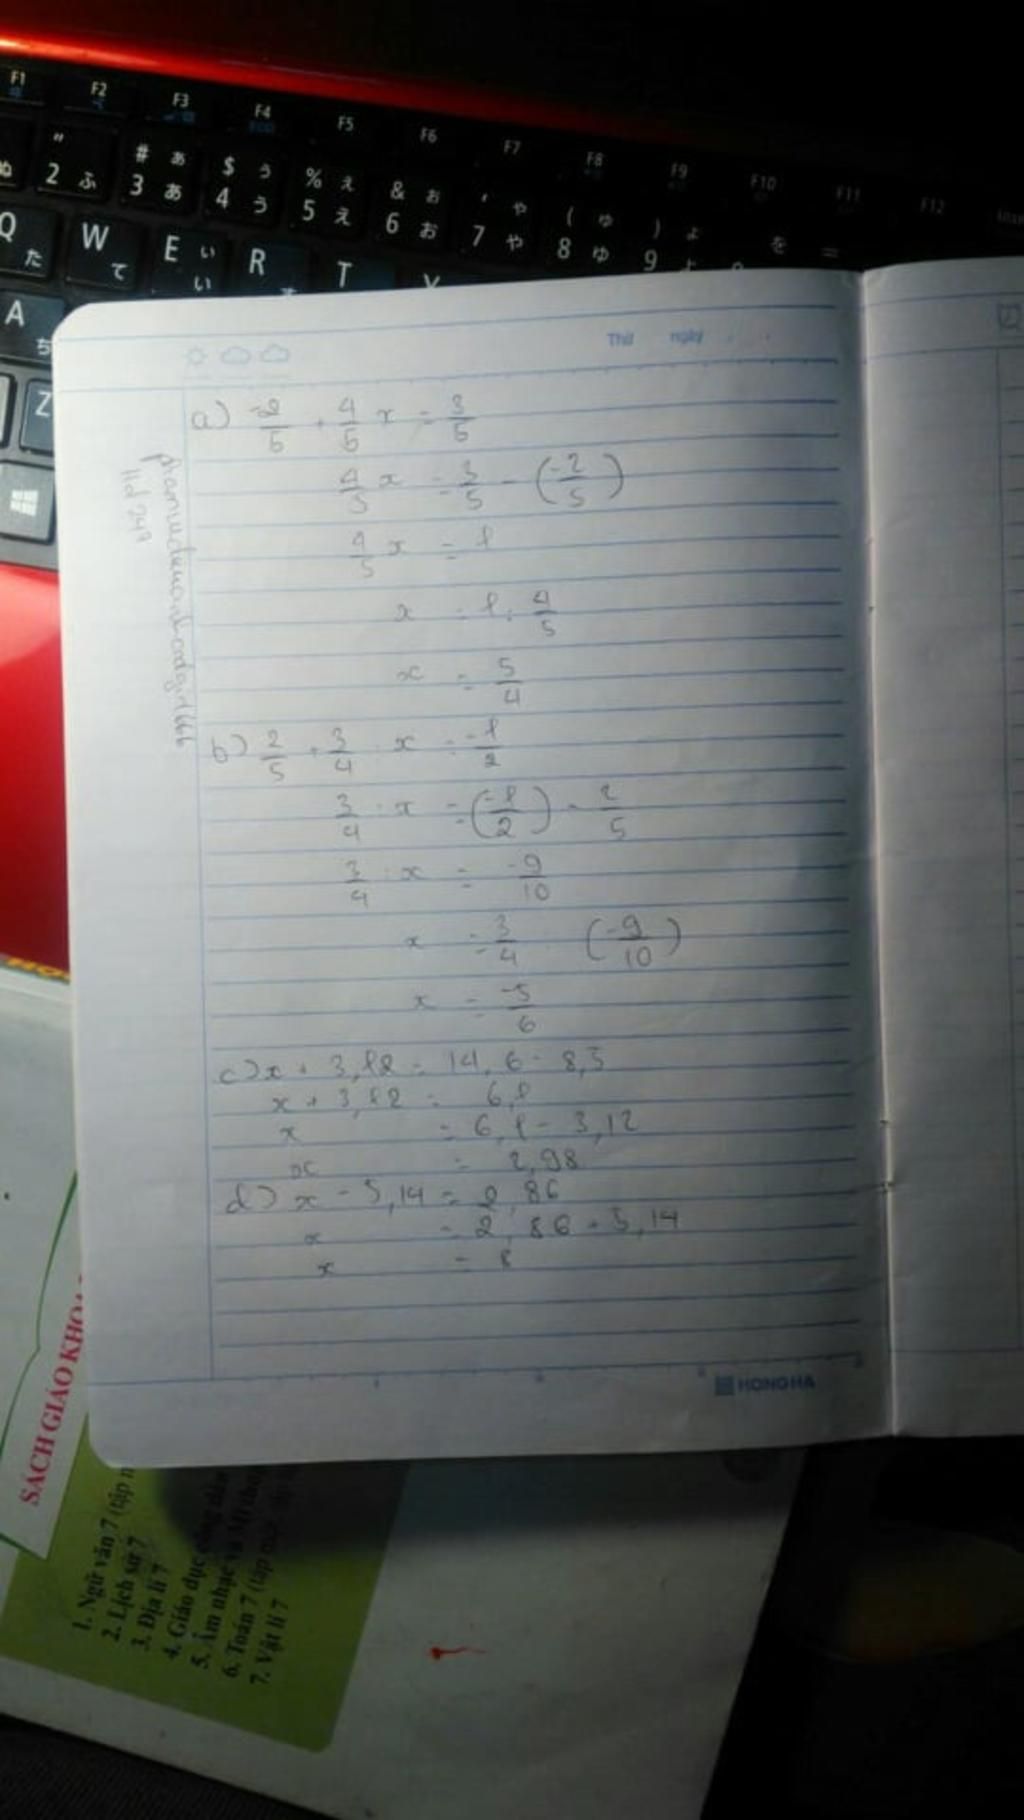 F1 F2 F3 F4 F5 F6 F7 F8 F9 F10 F11 F12
" # ぁ $ ぅ % ぇ & ぉ ' ゃ ( ゅ ) ょ を =
2 ふ 3 あ 4 う 5 え 6 お 7 や 8 ゆ 9 よ
Q た W て E ぃ い R T Y
A ち
Z
Thứ ngày
a) -2/5 + 4/5 x = 3/5
4/5 x = 3/5 - (-2/5)
4/5 x = 1
x = 1 : 4/5
x = 5/4
b) 2/5 + 3/4 · x = -1/2
3/4 · x = (-1/2) - 2/5
3/4 · x = -9/10
x = 3/4 (-9/10)
x = -5/6
c) x + 3,12 = 14,6 - 8,5
x + 3,12 = 6,1
x = 6,1 - 3,12
x = 2,98
d) x - 5,14 = 2,86
x = 2,86 + 5,14
x = 8
HONG HA
SÁCH GIÁO KHOA
1. Ngữ văn 7 (tập
2. Lịch sử 7
3. Địa lí 7
4. Giáo dục công dân
5. Âm nhạc và Mĩ thuật
6. Toán 7 (tập
7. Vật lí 7